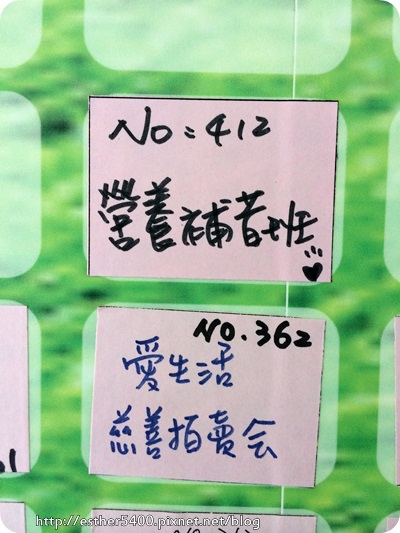 No: 412
營養補昔班
NO.362
愛生活
慈善拍賣会
http://esther5400.pixnet.net/blog